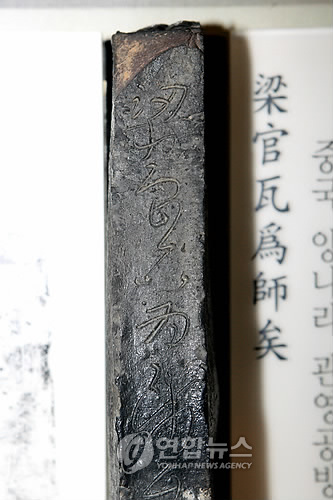 중국 양나라 관영공방
梁官瓦爲師矣
연합뉴스
YONHAP NEWS AGENCY